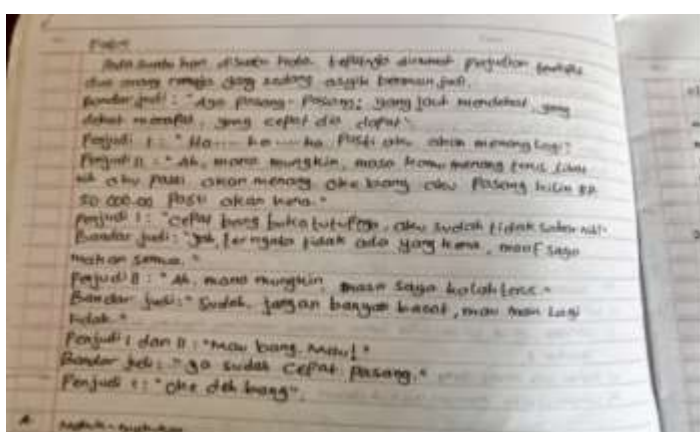 Pada suatu hari disuatu kota, tepatnya ditempat perjudian
dua orang remaja yang sedang asyik bermain judi.
Bandar judi : "Ayo pasang-pasang, yang jauh mendekat, yang
dekat merapat, yang cepat dia dapat".
Penjudi I : "Ha.... ha .... ha Pasti aku akan menang lagi!
Penjudi II : "Ah, mana mungkin, masa kamu menang terus,
nih aku pasti akan menang oke bang aku Pasang Rp.
50.000.00 Pasti akan kena."
Penjudi I : "Cepat bang buka tutupnya, aku sudah tidak sabar nih"
Bandar judi : "Yah, ternyata tidak ada yang kena, maaf saya
makan semua."
Penjudi II : "Ah, mana mungkin, masa saya kalah terus."
Bandar judi : "Sudah, jangan banyak bacot, mau main lagi
tidak."
Penjudi I dan II : "Mau bang. Mau!"
Bandar judi : "Ya sudah cepat pasang."
Penjudi I : "Oke deh bang".